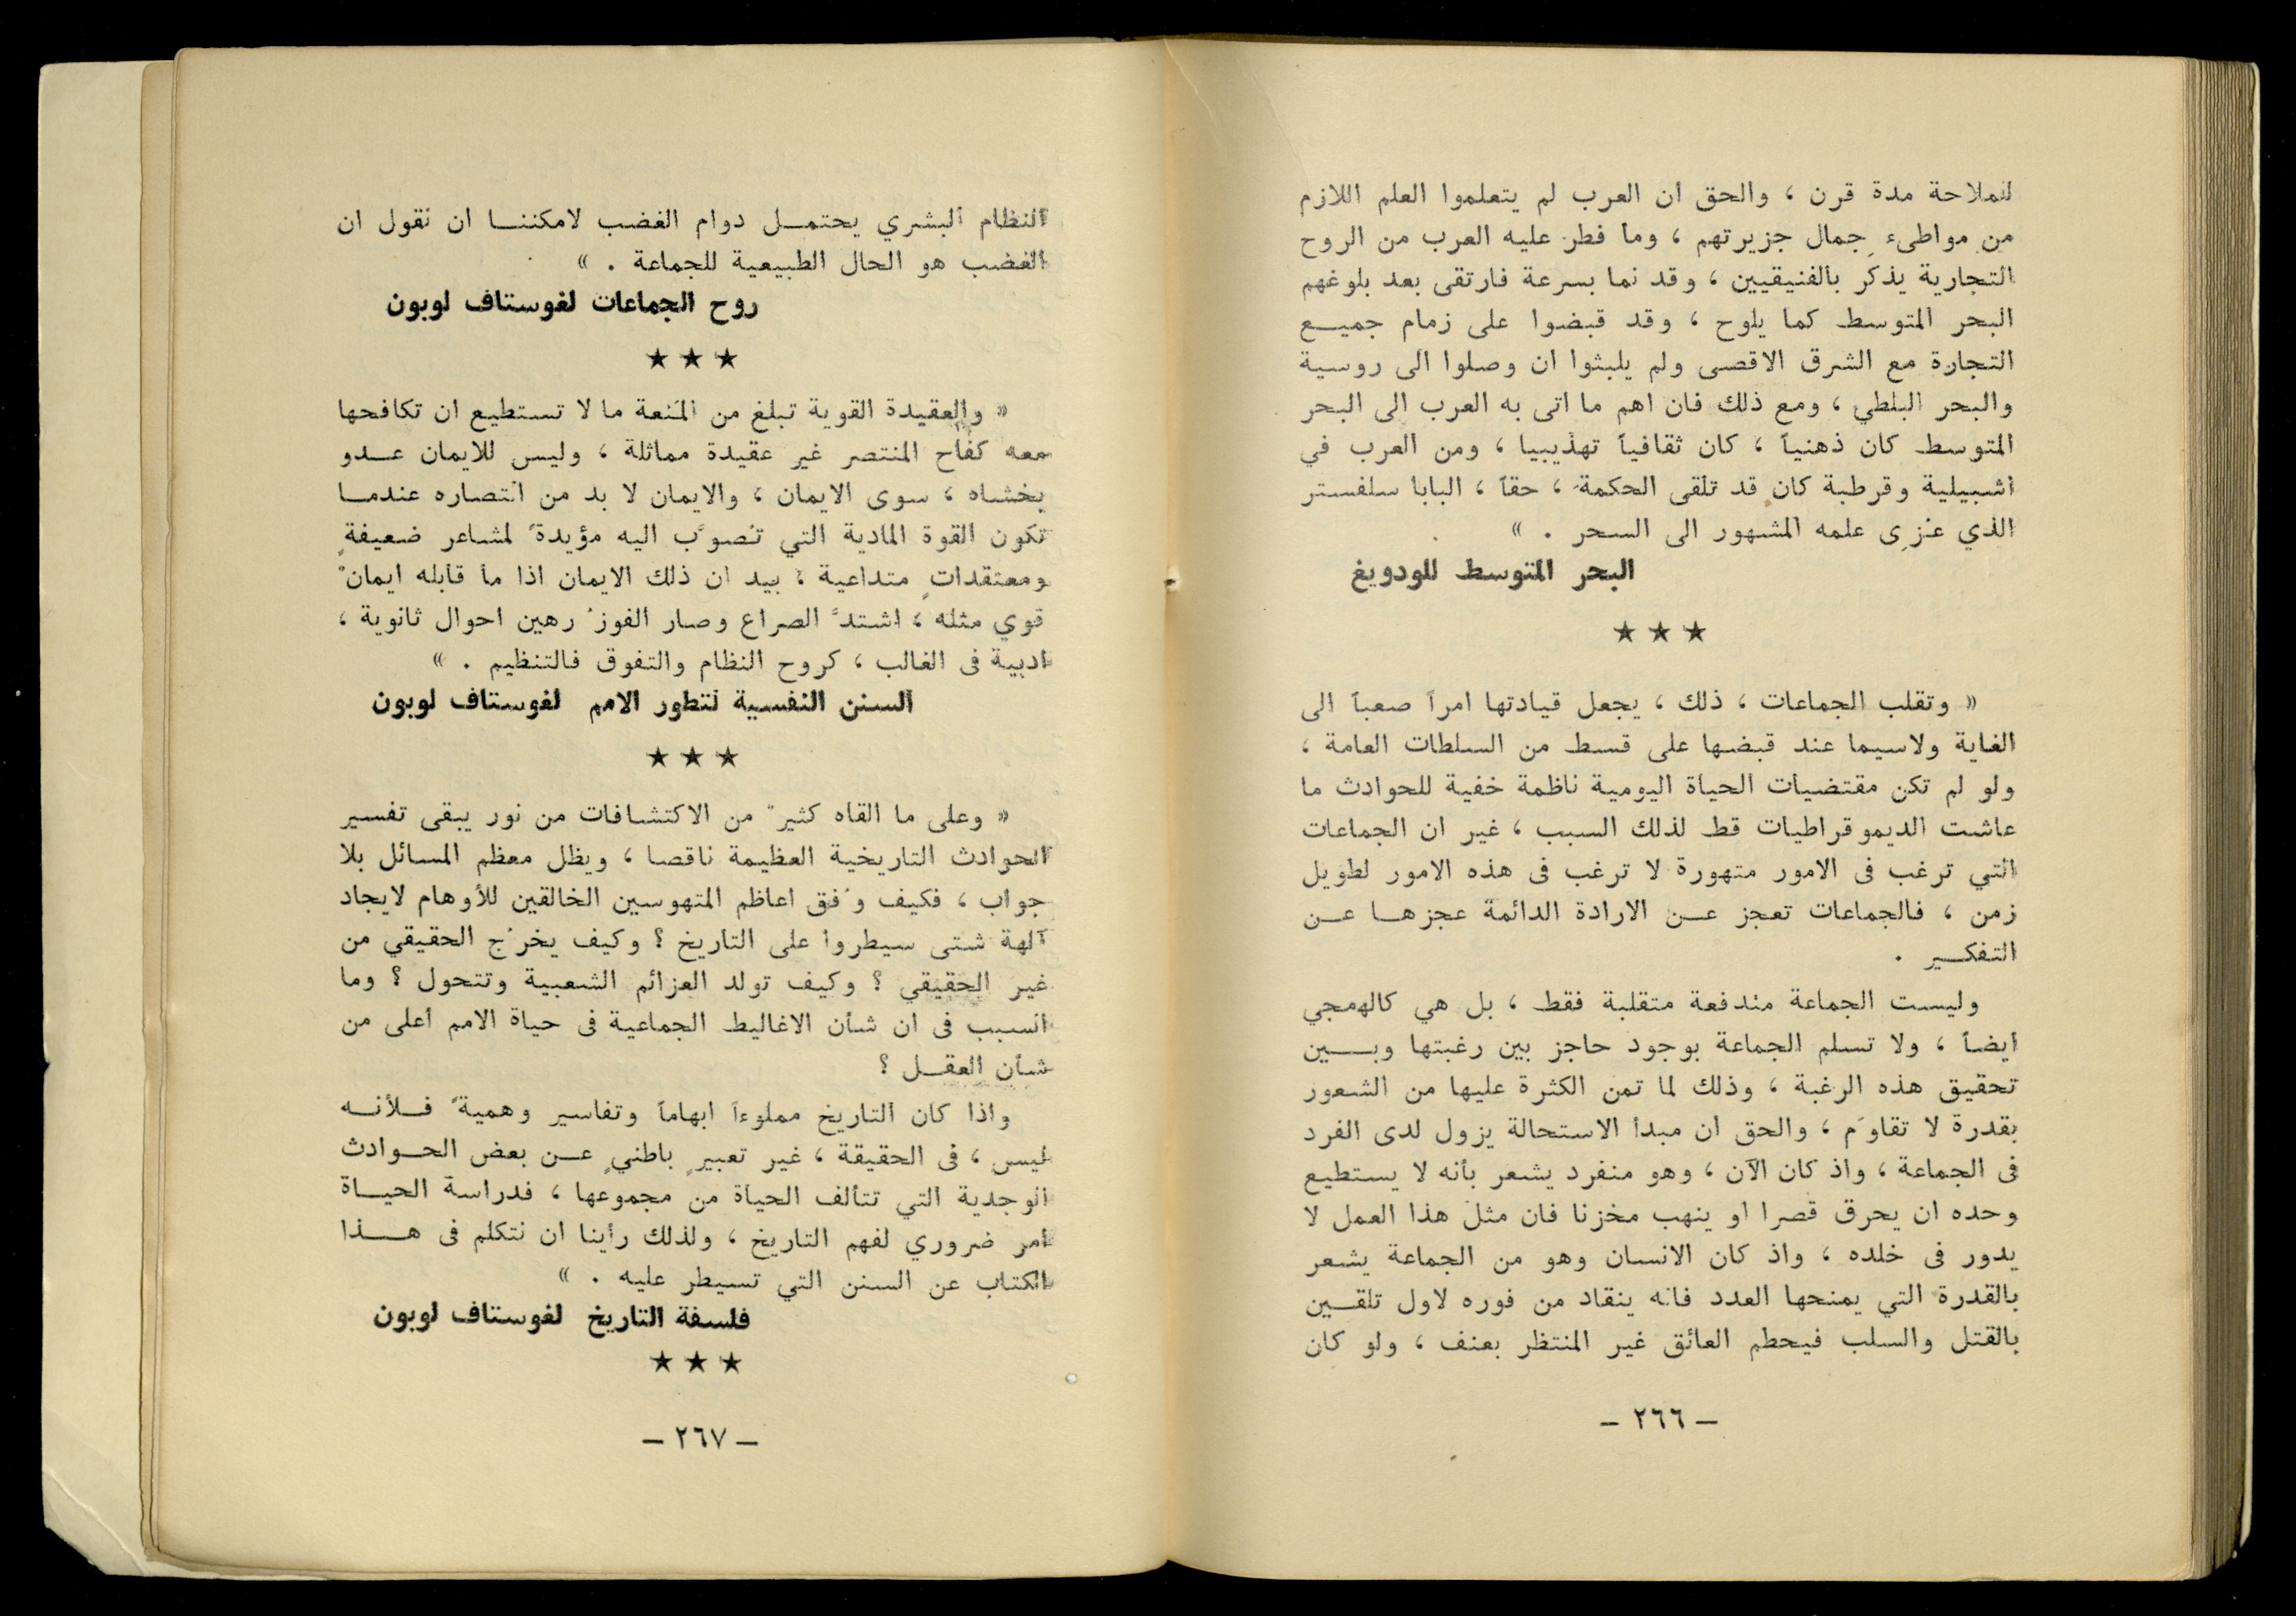 للملاحة مدة قرن ، والحق ان العرب لم يتعلموا العلم اللازم
من مواطىء جمال جزيرتهم ، وما فطر عليه العرب من الروح
التجارية يذكّر بالفنيقيين ، وقد نما بسرعة فارتقى بعد بلوغهم
البحر المتوسط كما يلوح ، وقد قبضوا على زمام جميع
التجارة مع الشرق الاقصى ولم يلبثوا ان وصلوا الى روسية
والبحر البلطي ، ومع ذلك فان اهم ما اتى به العرب الى البحر
المتوسط كان ذهنياً ، كان ثقافياً تهذيبيا ، ومن العرب في
اشبيلية وقرطبة كان قد تلقى الحكمة ، حقاً ، البابا سلفستر
الذي عُزِى علمه المشهور الى السحر . »
البحر المتوسط للودويغ
★ ★ ★
« وتقلب الجماعات ، ذلك ، يجعل قيادتها امراً صعباً الى
الغاية ولاسيما عند قبضها على قسط من السلطات العامة ،
ولو لم تكن مقتضيات الحياة اليومية ناظمة خفية للحوادث ما
عاشت الديموقراطيات قط لذلك السبب ، غير ان الجماعات
التي ترغب فى الامور متهورة لا ترغب فى هذه الامور لطويل
زمن ، فالجماعات تعجز عن الارادة الدائمة عجزها عن
التفكير .
وليست الجماعة مندفعة متقلبة فقط ، بل هي كالهمجي
أيضاً ، ولا تسلم الجماعة بوجود حاجز بين رغبتها وبين
تحقيق هذه الرغبة ، وذلك لما تمن الكثرة عليها من الشعور
بقدرة لا تقاوَم ، والحق ان مبدأ الاستحالة يزول لدى الفرد
فى الجماعة ، واذ كان الآن ، وهو منفرد يشعر بأنه لا يستطيع
وحده ان يحرق قصرا او ينهب مخزنا فان مثل هذا العمل لا
يدور فى خلده ، واذ كان الانسان وهو من الجماعة يشعر
بالقدرة التي يمنحها العدد فانه ينقاد من فوره لاول تلقين
بالقتل والسلب فيحطم العائق غير المنتظر بعنف ، ولو كان
– ٢٦٦ –
النظام البشري يحتمل دوام الغضب لامكننا ان نقول ان
الغضب هو الحال الطبيعية للجماعة . »
روح الجماعات لغوستاف لوبون
★ ★ ★
« والعقيدة القوية تبلغ من المَنعة ما لا تستطيع ان تكافحها
معه كفاح المنتصر غير عقيدة مماثلة ، وليس للايمان عدو
يخشاه ، سوى الايمان ، والايمان لا بد من انتصاره عندما
تكون القوة المادية التي تُصوَّب اليه مؤيدةً لمشاعر ضعيفةٍ
ومعتقداتٍ متداعية ، بيد ان ذلك الايمان اذا ما قابله ايمانٌ
قوي مثله ، اشتدَّ الصراع وصار الفوزُ رهين احوال ثانوية ،
ادبية فى الغالب ، كروح النظام والتفوق فالتنظيم . »
السنن النفسية لتطور الامم لغوستاف لوبون
★ ★ ★
« وعلى ما القاه كثيرٌ من الاكتشافات من نور يبقى تفسير
الحوادث التاريخية العظيمة ناقصا ، ويظل معظم المسائل بلا
جواب ، فكيف وُفق اعاظم المتهوسين الخالقين للأوهام لايجاد
آلهة شتى سيطروا على التاريخ ؟ وكيف يخرُج الحقيقي من
غير الحقيقي ؟ وكيف تولد العزائم الشعبية وتتحول ؟ وما
السبب فى ان شأن الاغاليط الجماعية فى حياة الامم أعلى من
شأن العقل ؟
واذا كان التاريخ مملوءاً ابهاماً وتفاسير وهميةً فلأنه
ليس ، فى الحقيقة ، غير تعبيرٍ باطنيٍ عن بعض الحوادث
الوجدية التي تتألف الحياة من مجموعها ، فدراسة الحياة
أمر ضروري لفهم التاريخ ، ولذلك رأينا ان نتكلم فى هذا
الكتاب عن السنن التي تسيطر عليه . »
فلسفة التاريخ لغوستاف لوبون
★ ★ ★
– ٢٦٧ –